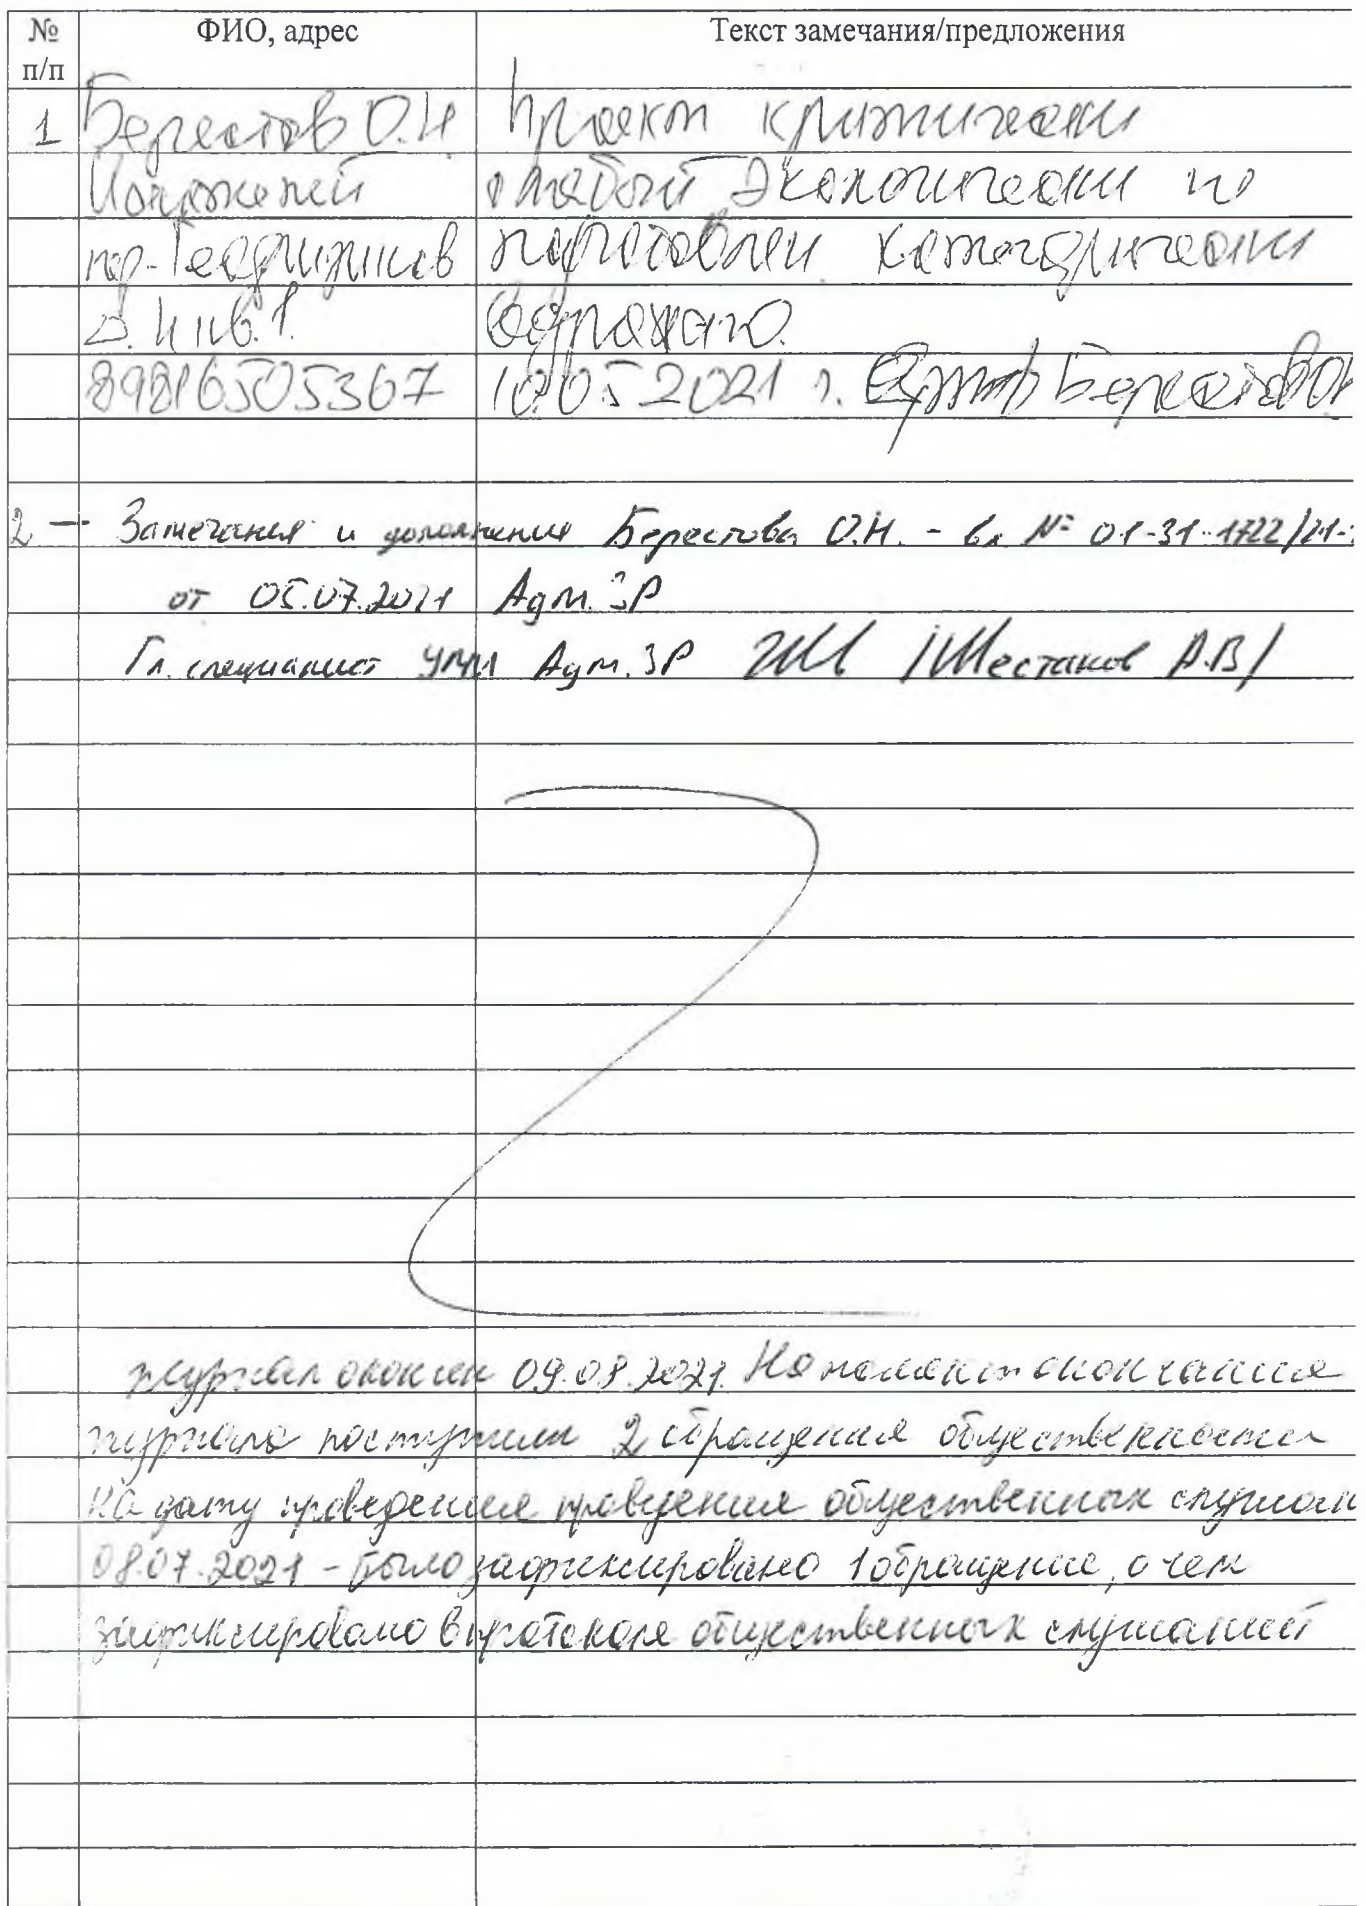 № п/п ФИО, адрес Текст замечания/предложения
1 Берестов О.Н. Проект критически
Искателей слабый Экологически не
пер. Геофизиков категорически
Д. 4 кв. 1.
89816505367 10.05 2021 г. Берестов ОН
2 – Замечания и дополнения Берестова О.Н. - вх № 01-31-1722/21-
от 05.07.2021 Адм. ЗР
Гл. специалист Адм. ЗР /Шестаков А.В/
журнал окончен 09.08.2021. На момент окончания
журнала поступили 2 обращения общественности
на дату проведения проведения общественных слушан
08.07.2021 - было зафиксировано 1 обращение, о чем
зафиксировано в протоколе общественных слушаний